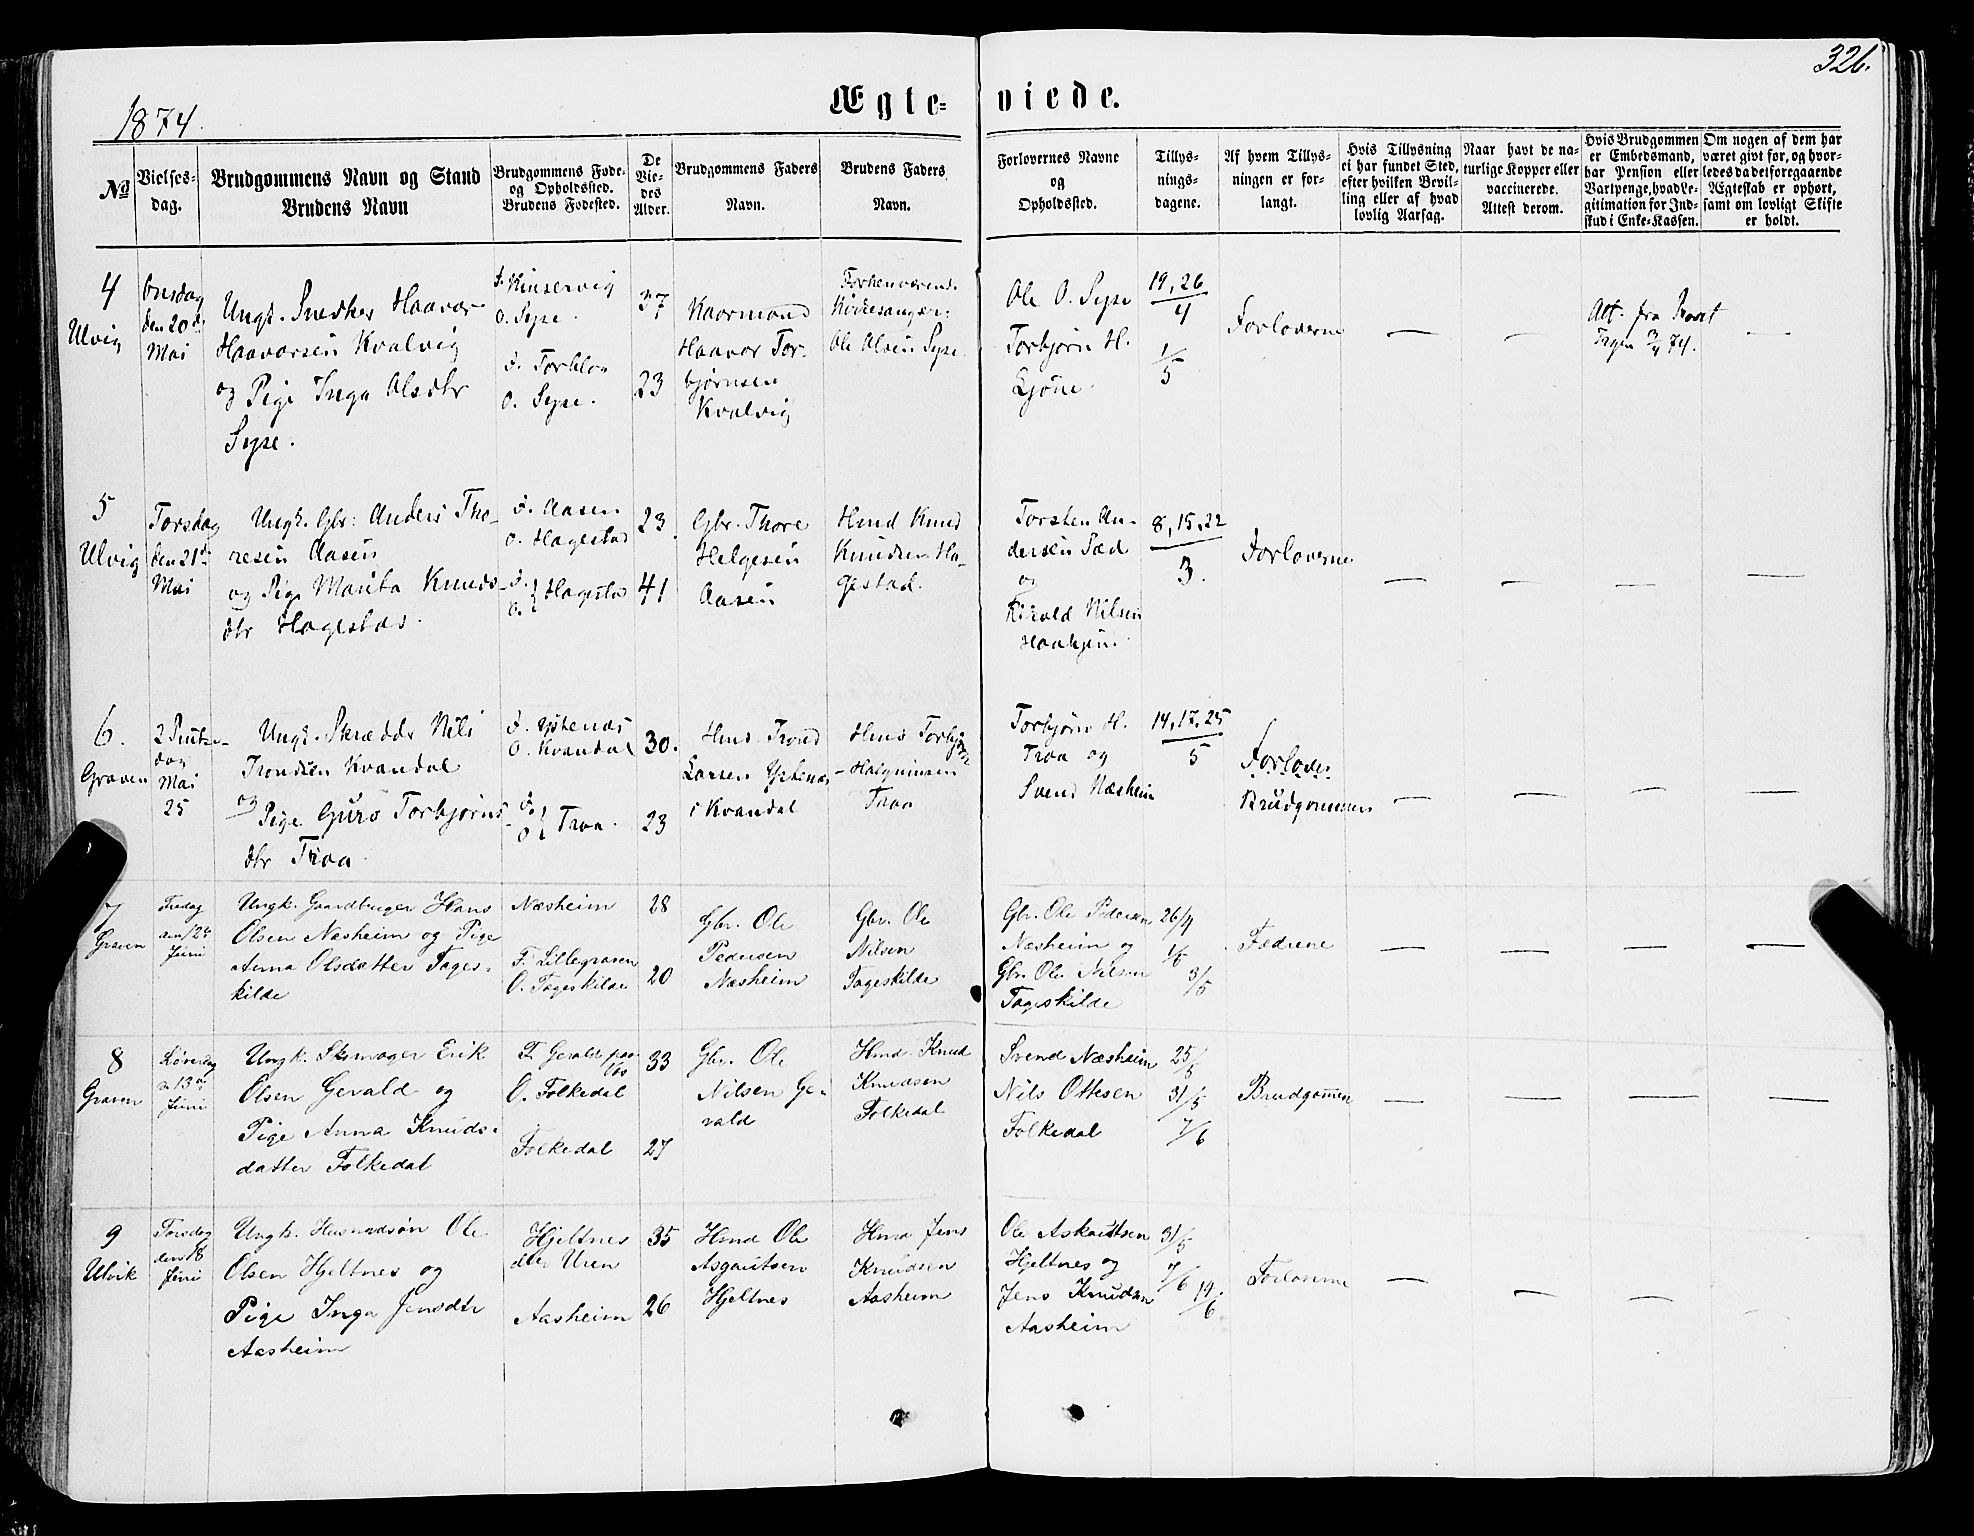 326.
1874.
Ægte-viede.
No
Vielses-
dag.
Brudgommens Navn og Stand
Brudens Navn
Brudgommens Føde-
og Opholdssted.
Brudens Fødested.
De
Vie-
des
Alder.
Brudgommens Faders
Navn.
Brudens Faders
Navn.
Forlovernes Navne
og
Opholdssted.
Tillys-
nings-
dagene.
Af hvem Tillys-
ningen er for-
langt.
Hvis Tillysning
ei har fundet Sted,
efter hvilken Bevil-
ling eller af hvad
lovlig Aarsag.
Naar havt de na-
turlige Kopper eller
vaccinerede.
Attest derom.
Hvis Brudgommen
er Embedsmand,
har Pension eller
Vartpenge, hvad Le-
gitimation for Ind-
skud i Enke-Kassen.
Om nogen af dem har
været givt før, og hvor-
ledes da det foregaaende
Ægteskab er ophørt,
samt om lovligt Skifte
er holdt.
4
Ulvig
Onsdag
den 20de
Mai
Ungk. Snedker Haavar
Haavarsen Kvalvig
og Pige Inga Olsdtr
Syse.
f. Kinservig
o. Syse.
f. Torblaa
O. Syse.
37
23
Kaarmand
Haavar Tor-
bjørnsen
Kvalvig
Forhenværende
Kirkesanger
Ole Olsen Syse
Ole O. Syse
Torbjørn H.
Ljøne.
19, 26
4
1/5
Forloverne
—
—
Att. fra Provst
—
5
Ulvig
Torsdag
den 21de
Mai
Ungk. Gbr. Anders Tho-
resen Aasen
og Pige Marita Knuds-
dtr Hagestad.
f. Aasen
o. Hagestad
f. } Hagestad
o.
23.
41
Gbr. Thore
Helgesen
Aasen
Hmd Knud
Knudsen Ha-
gestad.
Torsten An-
dersen Sæd
og
Nilsen
8, 15, 22
3.
Forloverne
—
—
—
—
6.
Graven
2 Pintse-
dag
Mai
25
Ungk. Skrædder Nils
Trondsen Kvandal
og
Pige Guro Torbjørns-
dtr Traa.
f. Ystenæs
O. Kvandal
f. } Traa.
O
30.
23
Hmd. Trond
Larsen Ystenæs
i Kvandal
Hmd Torbjørn
Traa
Torbjørn H.
Traa og
Svend Næsheim
14, 17, 25
5
Forlover
Brudgommen
—
—
—
—
7
Graven
Fredag
den 12te
Juni
Ungk. Gaardbruger Hans
Olsen Næsheim og Pige
Anna Olsdatter Tages-
kilde
Næsheim
F. Lillegraven
O. Tageskilde
28
20
Gbr. Ole
Pedersen
Næsheim
Gbr. Ole
Nilsen
Tageskilde
Gbr. Ole Pedersen
Næsheim og
Gbr. Ole Nilsen
Tageskilde
26/4
1/5
3/5
Fædrene
—
—
—
—
8
Graven
Løverdag
d. 13de
Juni
Ungk. Skomager Erik
Olsen Gerald og
Pige Anna Knuds-
datter Folkedal
F. Gerald paa
Vos
O. Folkedal
Folkedal
33
27
Gbr. Ole
Nilsen Ge-
rald
Hmd. Knud
Knudsen
Folkedal
Svend Næsheim
Nils Ottesen
Folkedal
25/5
31/5
7/6
Brudgommen
—
—
—
—
9
Ulvik
Torsdag
den 18
Juni
Ungk. Husmandsøn Ole
Olsen Hjeltnes og
Pige Inga Jensdtr
Aasheim
Hjeltnes
Uren
Aasheim
35
26
Hmd Ole
Asgautsen
Hjeltnes
Hmd Jens
Knudsen
Aasheim
Ole Askautsen
Hjeltnes og
Jens Knudsen
Aasheim
31/5
7/6
14/6
Forloverne
—
—
—
—